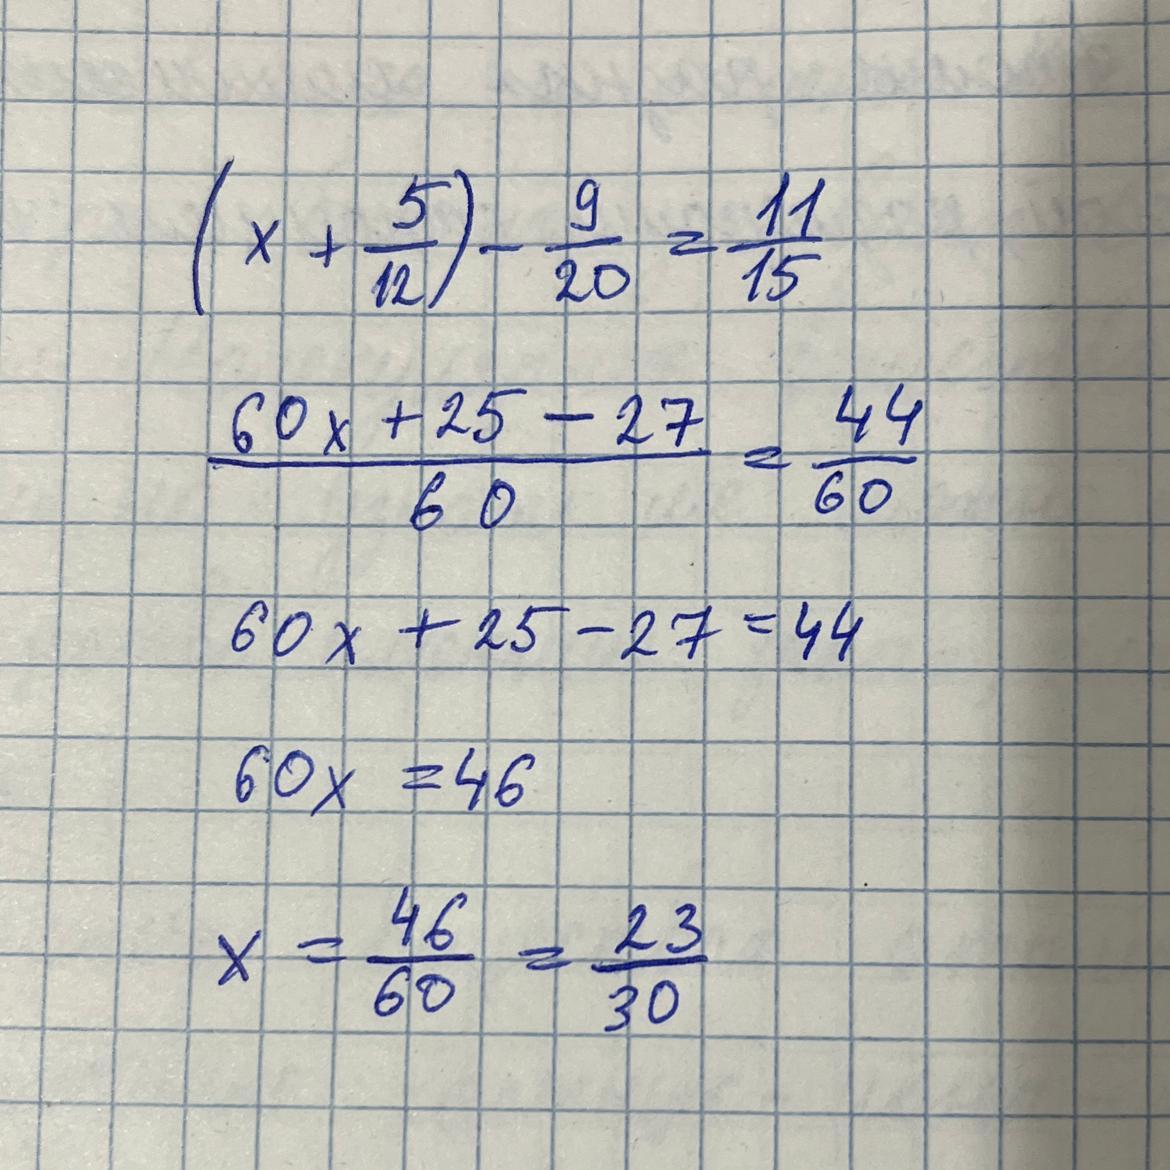 (x + 5/12) - 9/20 = 11/15
(60x + 25 - 27)/60 = 44/60
60x + 25 - 27 = 44
60x = 46
x = 46/60 = 23/30